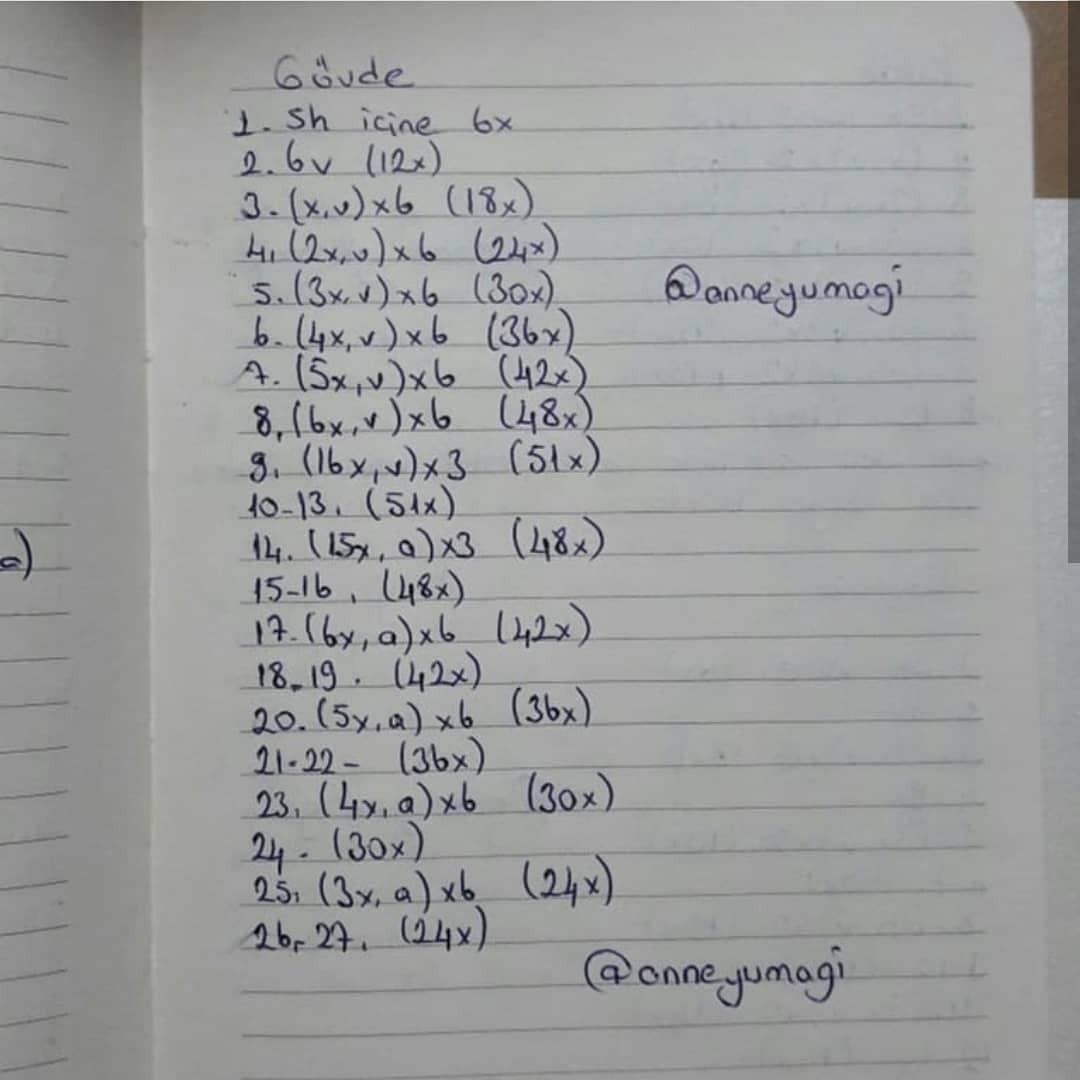 Gövde
1. Sh icine 6x
2. 6v (12x)
3. (x,v)x6 (18x)
4. (2x,v)x6 (24x)
5. (3x,v)x6 (30x)
@anneyumagi
6. (4x,v)x6 (36x)
7. (5x,v)x6 (42x)
8. (6x,v)x6 (48x)
9. (16x,v)x3 (51x)
10-13. (51x)
14. (15x, a)x3 (48x)
a)
15-16. (48x)
17. (6x,a)x6 (42x)
18-19. (42x)
20. (5x,a)x6 (36x)
21-22- (36x)
23. (4x,a)x6 (30x)
24. (30x)
25. (3x,a)x6 (24x)
26-27. (24x)
@anneyumagi